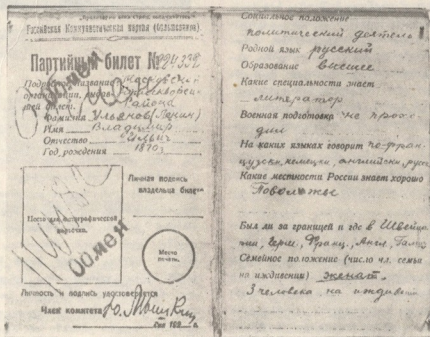 "Пролетарии всех стран, соединяйтесь!"
Российская Коммунистическая партия (большевиков)
Партийный билет № 224332
Подробное название
организации, выдав-
шей билет
Района
Фамилия Ульянов (Ленин)
Имя Владимир
Отчество Ильич
Год рождения 1870 г.
Личная подпись
владельца билета
Место для фотографической
карточки.
Место
печати.
Обмен
Обмен
Личность и подпись удостоверяется
Член комитета
Социальное положение
политический деятель
Родной язык русский
Образование высшее
Какие специальности знает
литератор
Военная подготовка не прохо-
дил
На каких языках говорит по-фран-
цузски, немецки, английски, русс
Какие местности России знает хорошо
Поволжье
Был ли за границей и где в Швейца-
рии, Герм., Франц., Англ., Галиц.
Семейное положение (число чл. семьи
на иждивении) женат.
3 человека на иждивении